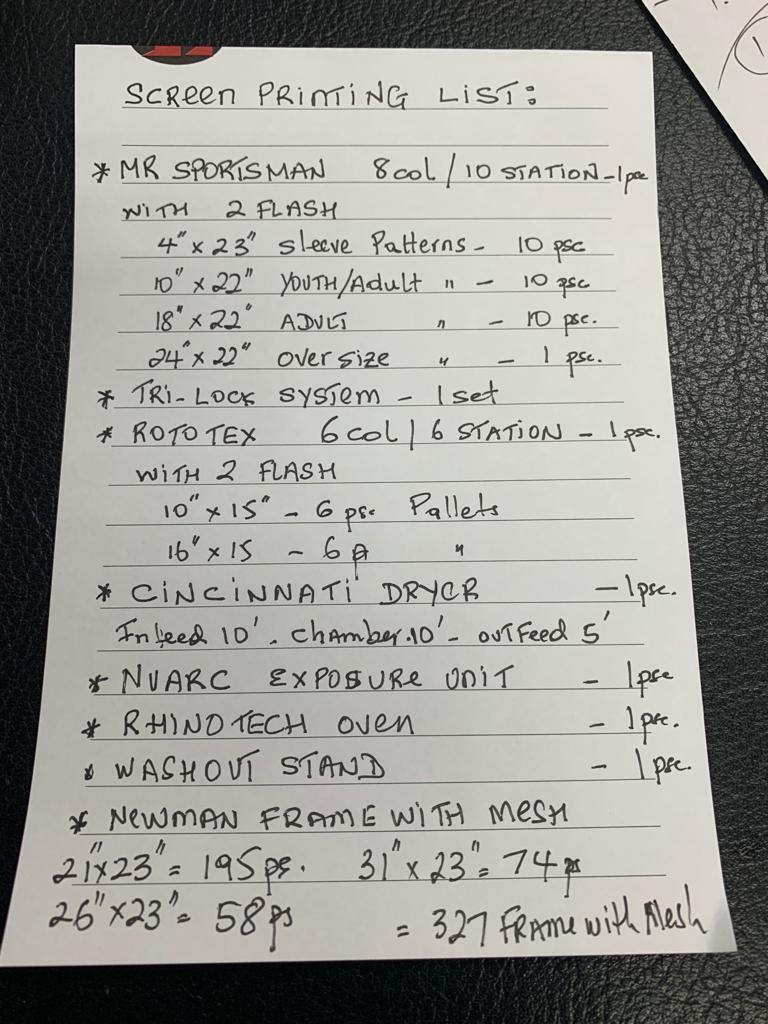 SCREEN PRINTING LIST:
* MR SPORTSMAN 8 COL / 10 STATION - 1 psc
WITH 2 FLASH
4" x 23" Sleeve Patterns - 10 psc
10" x 22" YOUTH/Adult " - 10 psc
18" x 22" ADULT " - 10 psc.
24" x 22" over size " - 1 psc.
* TRI-LOCK SYSTEM - 1 set
* ROTOTEX 6 COL / 6 STATION - 1 psc.
WITH 2 FLASH
10" x 15" - 6 psc Pallets
16" x 15 - 6 p "
* CINCINNATI DRYER - 1 psc.
Infeed 10'. Chamber.10' - OUTFeed 5'
* NUARC EXPOSURE UNIT - 1 psc
* RHINOTECH OVEN - 1 psc.
* WASHOUT STAND - 1 psc.
* NEWMAN FRAME WITH MESH
21" x 23" = 195 ps. 31" x 23" = 74 ps
26" x 23" = 58 ps = 327 FRAME with Mesh